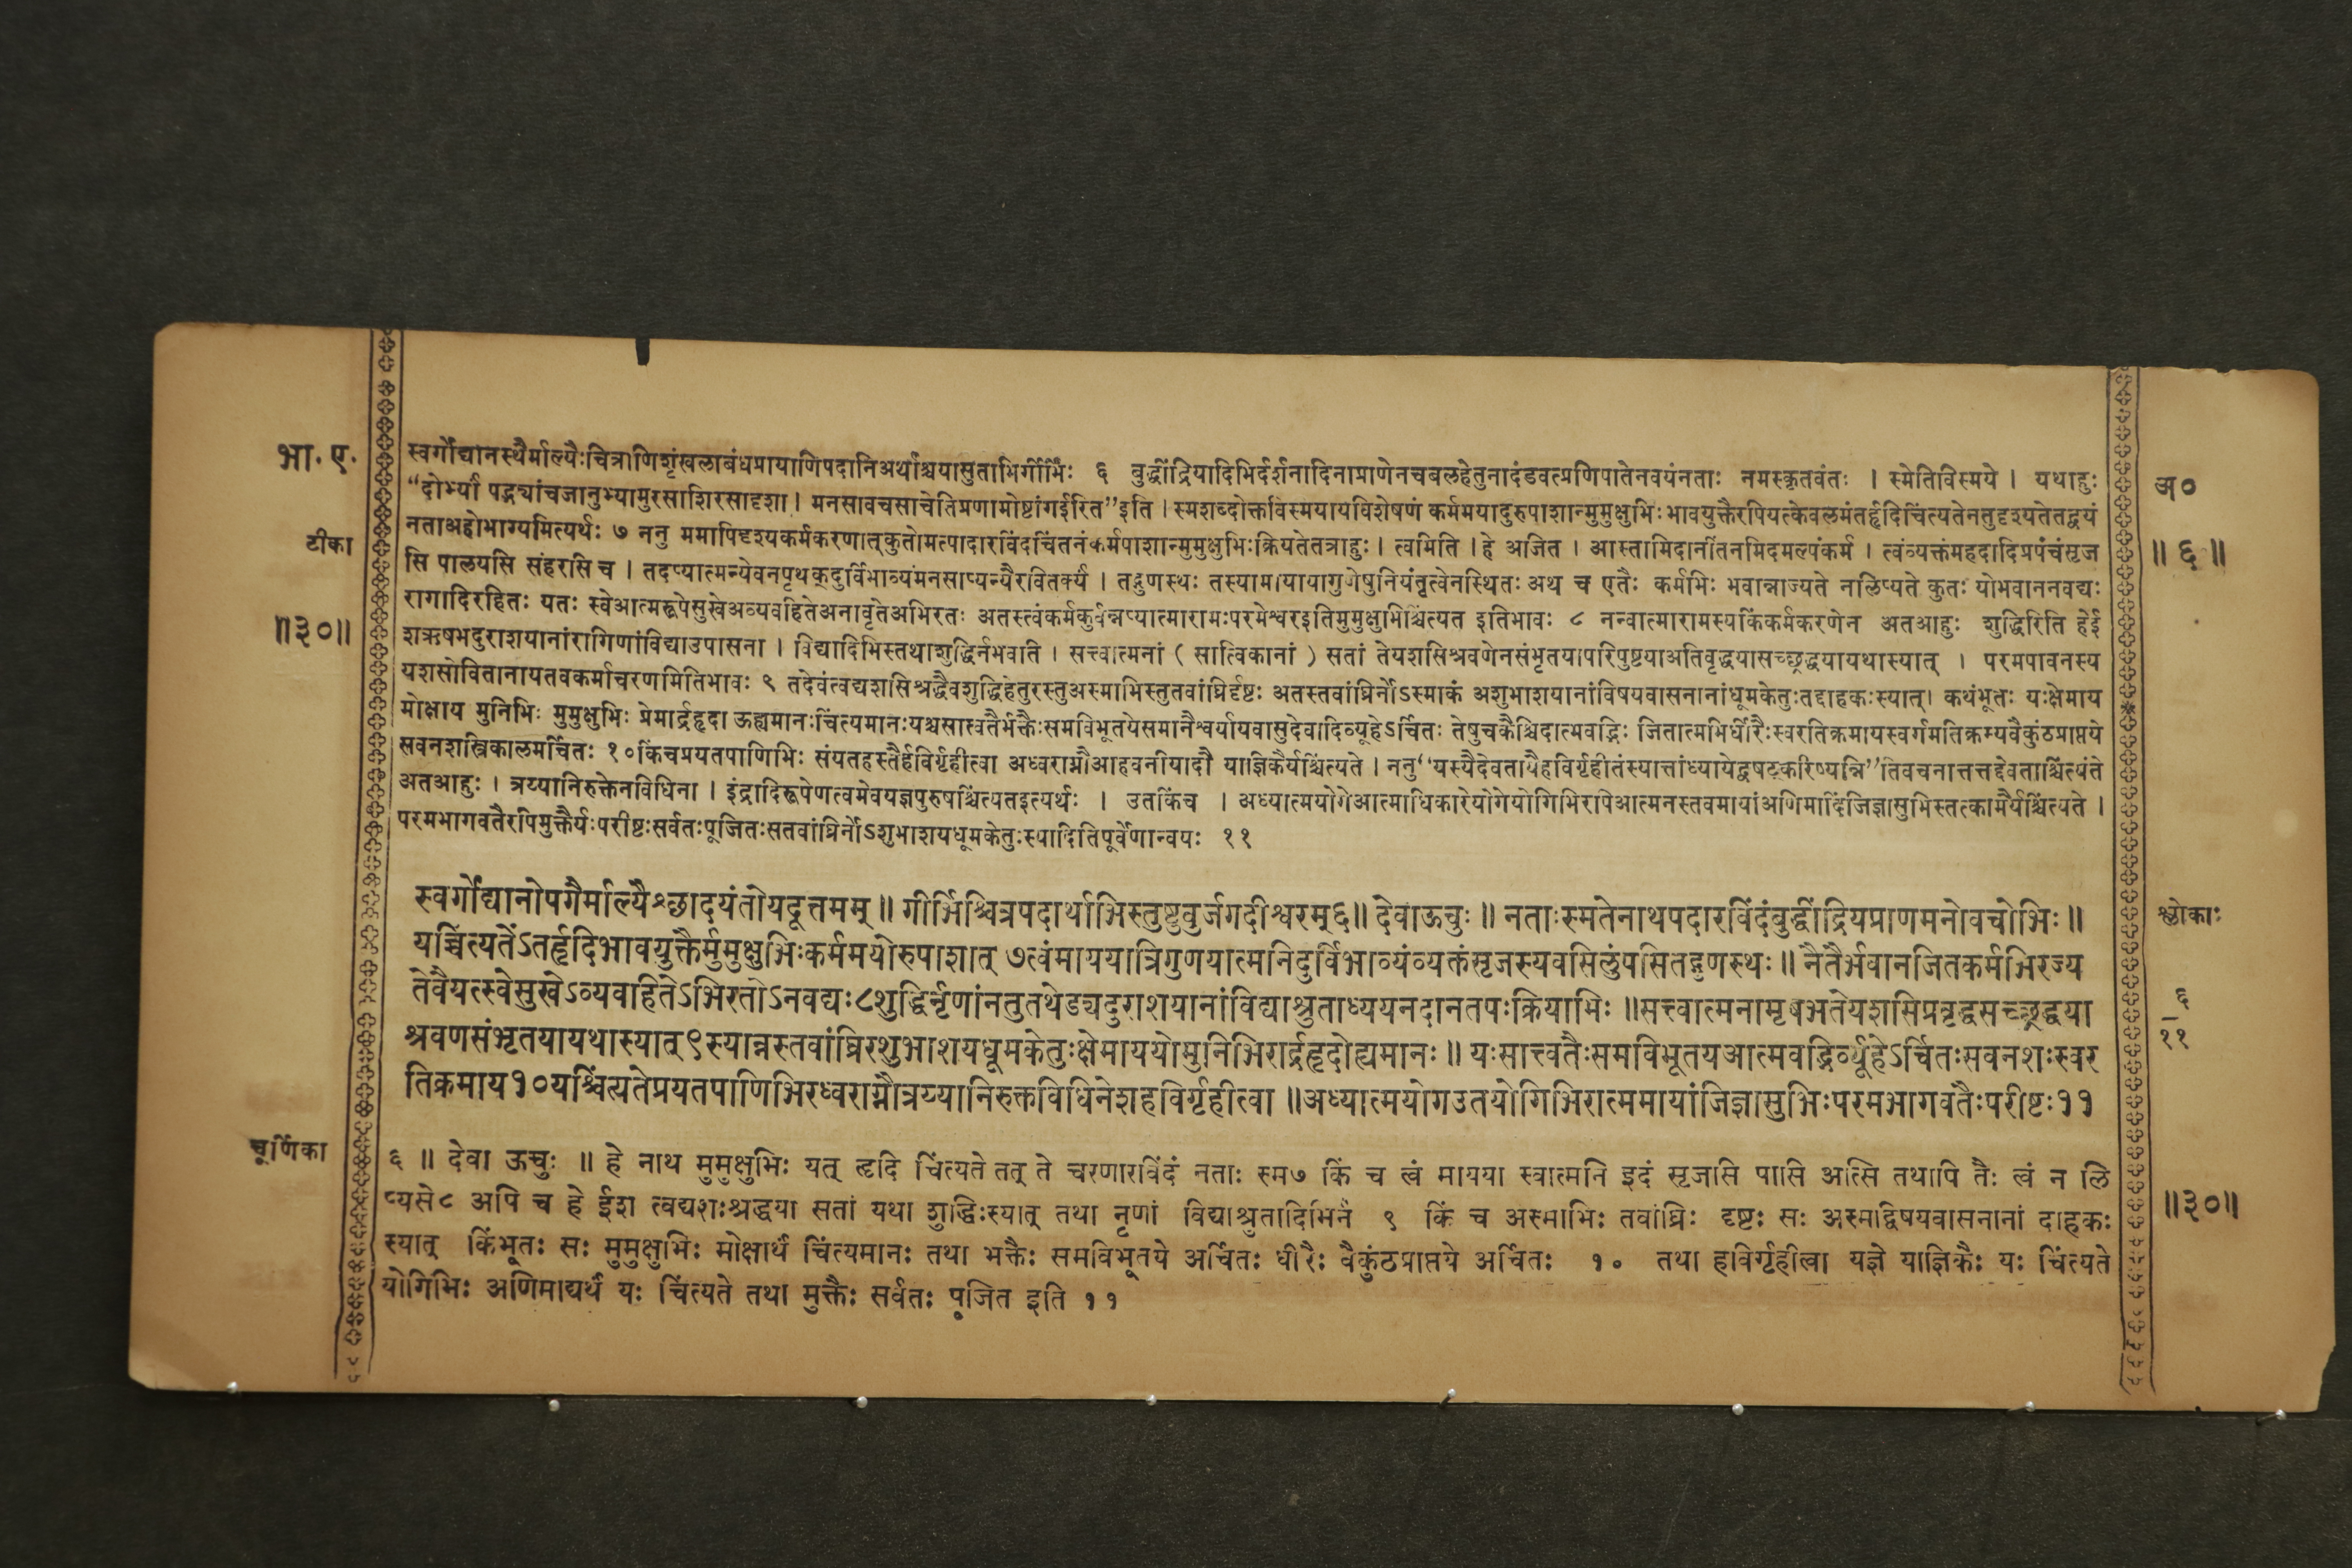 भा. ए.
टीका
॥३०॥
स्वर्गोद्यानस्थैर्माल्यैःचित्राणिशृंखलाबंधप्रायाणिपदानिअर्थाश्चयासुताभिर्गीर्भिः ६ बुद्धींद्रियादिभिर्दर्शनादिनाप्राणेनचबलहेतुनादंडवत्प्रणिपातेनवयंनताः नमस्कृतवंतः । स्मेतिविस्मये । यथाहुः
“दोर्भ्यां पद्भ्यांचजानुभ्यामुरसाशिरसादृशा । मनसावचसाचेतिप्रणामोष्टांगईरित”इति । स्मशब्दोक्तविस्मयायविशेषणं कर्ममयादुरुपाशान्मुमुक्षुभिःभावयुक्तैरपियत्केवलमंतर्हृदिचिंत्यतेनतुदृश्यतेतद्वयं
नताअहोभाग्यमित्यर्थः ७ ननु ममापिदृश्यकर्मकरणात्कुतोमत्पादारविंदचिंतनंकर्मपाशान्मुमुक्षुभिःक्रियतेतत्राहुः । त्वमिति । हे अजित । आस्तामिदानींतनमिदमल्पंकर्म । त्वंव्यक्तंमहदादिप्रपंचंसृज
सि पालयसि संहरसि च । तदप्यात्मन्येवनपृथक्दुर्विभाव्यंमनसाप्यन्यैरवितर्क्यं । तद्गुणस्थः तस्यामायायागुणेषुनियंतृत्वेनस्थितः अथ च एतैः कर्मभिः भवान्नाज्यते नलिप्यते कुतः योभवाननवद्यः
रागादिरहितः यतः स्वेआत्मरूपेसुखेअव्यवहितेअनावृतेअभिरतः अतस्त्वंकर्मकुर्वन्नप्यात्मारामःपरमेश्वरइतिमुमुक्षुभिश्चिंत्यत इतिभावः ८ नन्वात्मारामस्यकिंकर्मकरणेन अतआहुः शुद्धिरिति हेई
शऋषभदुराशयानांरागिणांविद्याउपासना । विद्यादिभिस्तथाशुद्धिर्नभवति । सत्त्वात्मनां ( सात्विकानां ) सतां तेयशसिश्रवणेनसंभृतयापरिपुष्टयाअतिवृद्धयासच्छ्रद्धयायथास्यात् । परमपावनस्य
यशसोवितानायतवकर्माचरणमितिभावः ९ तदेवंत्वद्यशसिश्रद्धैवशुद्धिहेतुरस्तुअस्माभिस्तुतवांघ्रिर्दृष्टः अतस्तवांघ्रिर्नोऽस्माकं अशुभाशयानांविषयवासनानांधूमकेतुःतद्दाहकःस्यात्। कथंभूतः यःक्षेमाय
मोक्षाय मुनिभिः मुमुक्षुभिः प्रेमार्द्रहृदा ऊह्यमानःचिंत्यमानःयश्चसात्वतैर्भक्तैःसमविभूतयेसमानैश्वर्यायवासुदेवादिव्यूहेऽर्चितः तेषुचकैश्चिदात्मवद्भिः जितात्मभिर्धीरैःस्वरतिक्रमायस्वर्गमतिक्रम्यवैकुंठप्राप्तये
सवनशस्त्रिकालमर्चितः १०किंचप्रयतपाणिभिः संयतहस्तैर्हविर्गृहीत्वा अध्वराग्नौआहवनीयादौ याज्ञिकैर्यश्चिंत्यते । ननु“यस्यैदेवतायैहविर्गृहीतंस्यात्तांध्यायेद्वषट्करिष्यन्नि”तिवचनात्तत्तद्देवताश्चिंत्यंते
अतआहुः । त्रय्यानिरुक्तेनविधिना । इंद्रादिरूपेणत्वमेवयज्ञपुरुषश्चिंत्यतइत्यर्थः । उतकिंच । अध्यात्मयोगेआत्माधिकारेयोगेयोगिभिरपिआत्मनस्तवमायांअणिमादिंजिज्ञासुभिस्तत्कामैर्यश्चिंत्यते ।
परमभागवतैरपिमुक्तैर्यःपरीष्टःसर्वतःपूजितःसतवांघ्रिर्नोऽशुभाशयधूमकेतुःस्यादितिपूर्वेणान्वयः ११
अ०
॥ ६ ॥
स्वर्गोद्यानोपगैर्माल्यैश्छादयंतोयदूत्तमम् ॥ गीर्भिश्चित्रपदार्थाभिस्तुष्टुवुर्जगदीश्वरम्६॥ देवाऊचुः ॥ नताःस्मतेनाथपदारविंदंबुद्धींद्रियप्राणमनोवचोभिः ॥
यच्चिंत्यतेंऽतर्हृदिभावयुक्तैर्मुमुक्षुभिःकर्ममयोरुपाशात् ७त्वंमाययात्रिगुणयात्मनिदुर्विभाव्यंव्यक्तंसृजस्यवसिलुंपसितद्गुणस्थः ॥ नैतैर्भवानजितकर्मभिरज्य
तेवैयत्स्वेसुखेऽव्यवहितेऽभिरतोऽनवद्यः८शुद्धिर्नृणांनतुतथेड्यदुराशयानांविद्याश्रुताध्ययनदानतपःक्रियाभिः ॥सत्त्वात्मनामृषभतेयशसिप्रवृद्धसच्छ्रद्धया
श्रवणसंभृतयायथास्यात्९स्यान्नस्तवांघ्रिरशुभाशयधूमकेतुःक्षेमाययोमुनिभिरार्द्रहृदोह्यमानः ॥ यःसात्त्वतैःसमविभूतयआत्मवद्भिर्व्यूहेऽर्चितःसवनशःस्वर
तिक्रमाय१०यश्चिंत्यतेप्रयतपाणिभिरध्वराग्नौत्रय्यानिरुक्तविधिनेशहविर्गृहीत्वा ॥अध्यात्मयोगउतयोगिभिरात्ममायांजिज्ञासुभिःपरमभागवतैःपरीष्टः११
श्लोकाः
६
११
चूर्णिका
६ ॥ देवा ऊचुः ॥ हे नाथ मुमुक्षुभिः यत् हृदि चिंत्यते तत् ते चरणारविंदं नताः स्म७ किं च त्वं मायया स्वात्मनि इदं सृजसि पासि अत्सि तथापि तैः त्वं न लि
प्यसे८ अपि च हे ईश त्वद्यशःश्रद्धया सतां यथा शुद्धिःस्यात् तथा नृणां विद्याश्रुतादिभिर्न ९ किं च अस्माभिः तवांघ्रिः दृष्टः सः अस्मद्विषयवासनानां दाहकः
स्यात् किंभूतः सः मुमुक्षुभिः मोक्षार्थं चिंत्यमानः तथा भक्तैः समविभूतये अर्चितः धीरैः वैकुंठप्राप्तये अर्चितः १० तथा हविर्गृहीत्वा यज्ञे याज्ञिकैः यः चिंत्यते
योगिभिः अणिमाद्यर्थं यः चिंत्यते तथा मुक्तैः सर्वतः पूजित इति ११
॥३०॥